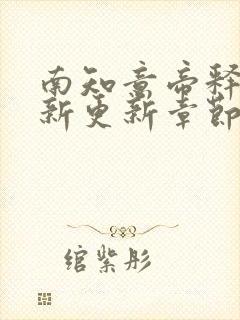 南知意帝释
新更新章節
绾紫彤